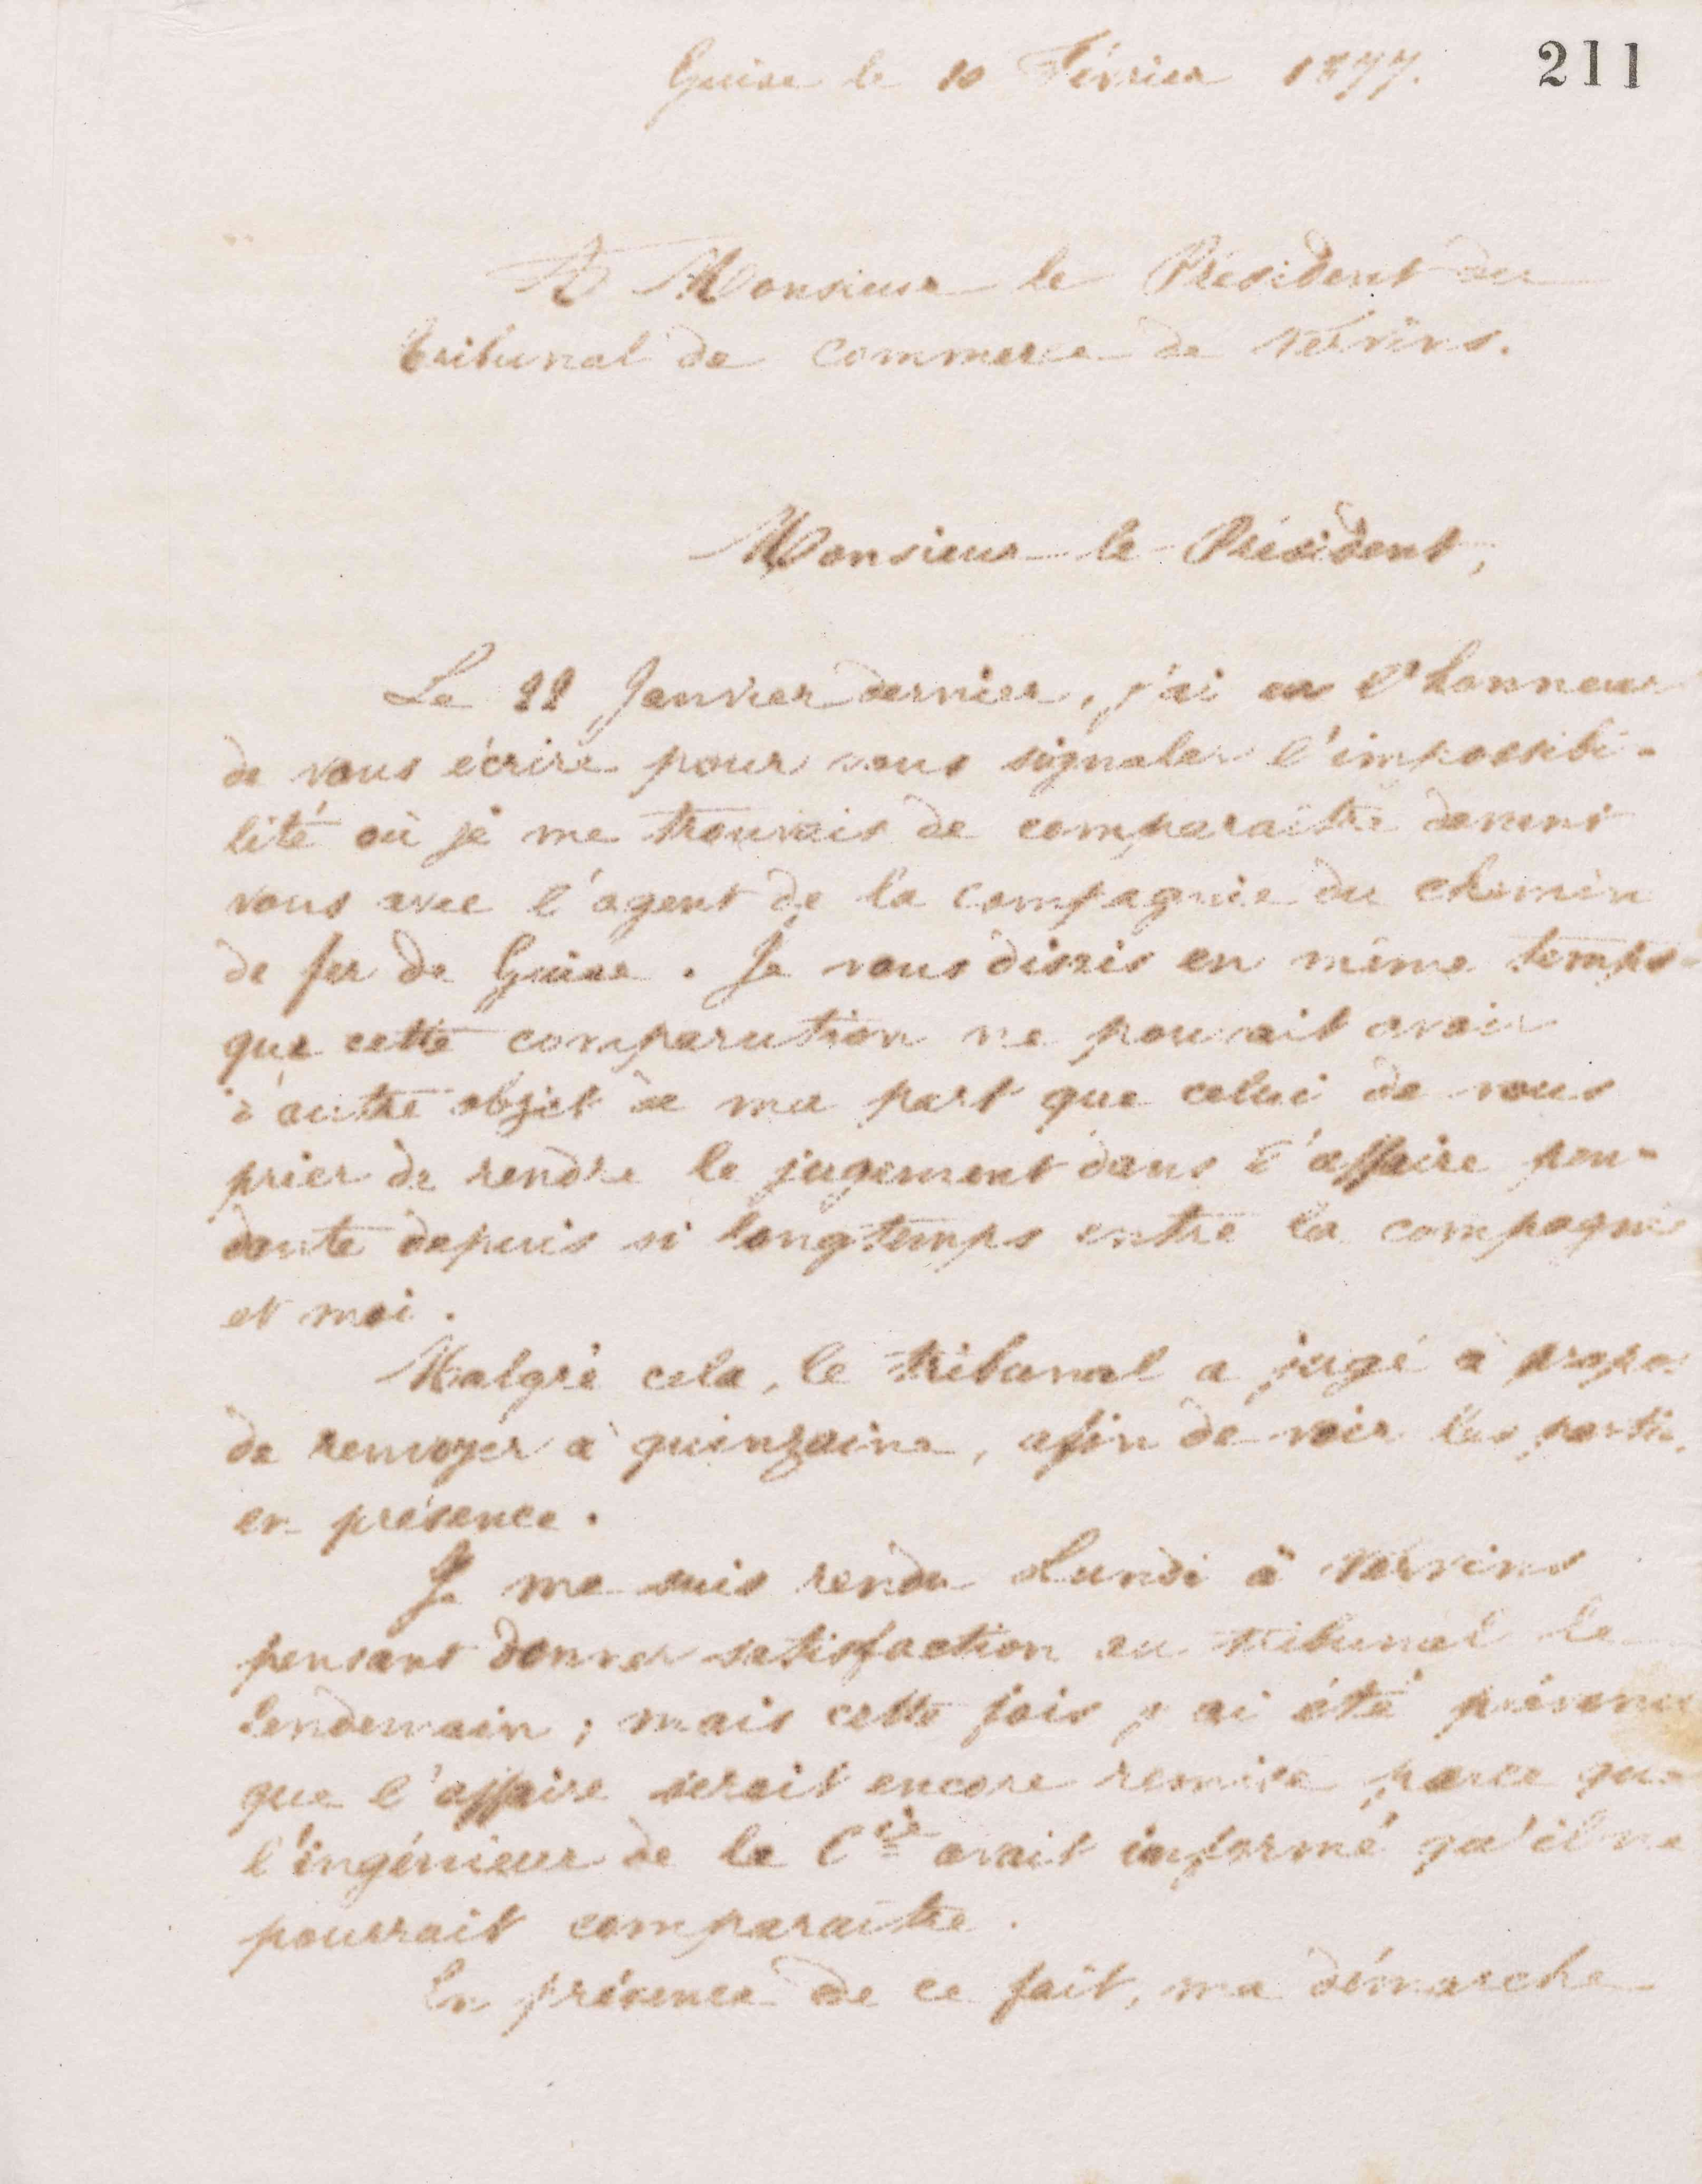 Guise le 10 Février 1877.
211
A Monsieur le Président du
tribunal de commerce de Vervins.
Monsieur le Président,
Le 22 Janvier dernier, j'ai eu l'honneur
de vous écrire pour vous signaler l'impossibi-
lité où je me trouvais de comparaître devant
vous avec l'agent de la compagnie du chemin
de fer de Guise. Je vous disais en même temps
que cette comparution ne pouvait avoir
d'autre objet de ma part que celui de vous
prier de rendre le jugement dans l'affaire pen-
dante depuis si longtemps entre la compagnie
et moi.
Malgré cela, le tribunal a jugé à propos
de renvoyer à quinzaine, afin de voir les parties
en présence.
Je me suis rendu Lundi à Vervins
pensant donner satisfaction au tribunal le
lendemain; mais cette fois j'ai été prévenu
que l'affaire serait encore remise parce que
l'ingénieur de la Cie avait informé qu'il ne
pourrait comparaître.
En présence de ce fait, ma démarche